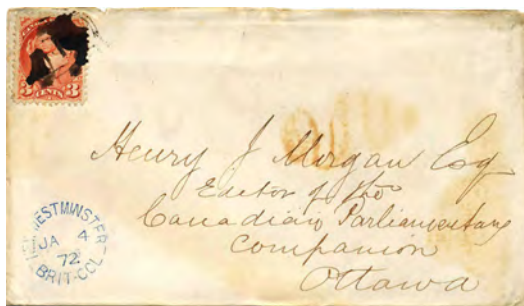 3 CENTS 3
Henry J Morgan Esq
Editor of the
Canadian Parliamentary
Companion
Ottawa
WESTMINSTER
JA 4
72
BRIT-COL